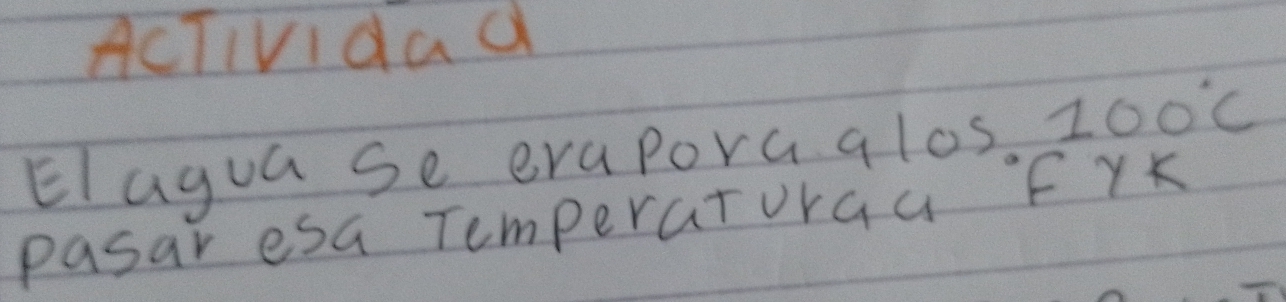 Actividad
El agua se evapora a los 100°C
pasar esa Temperatura a °F y K